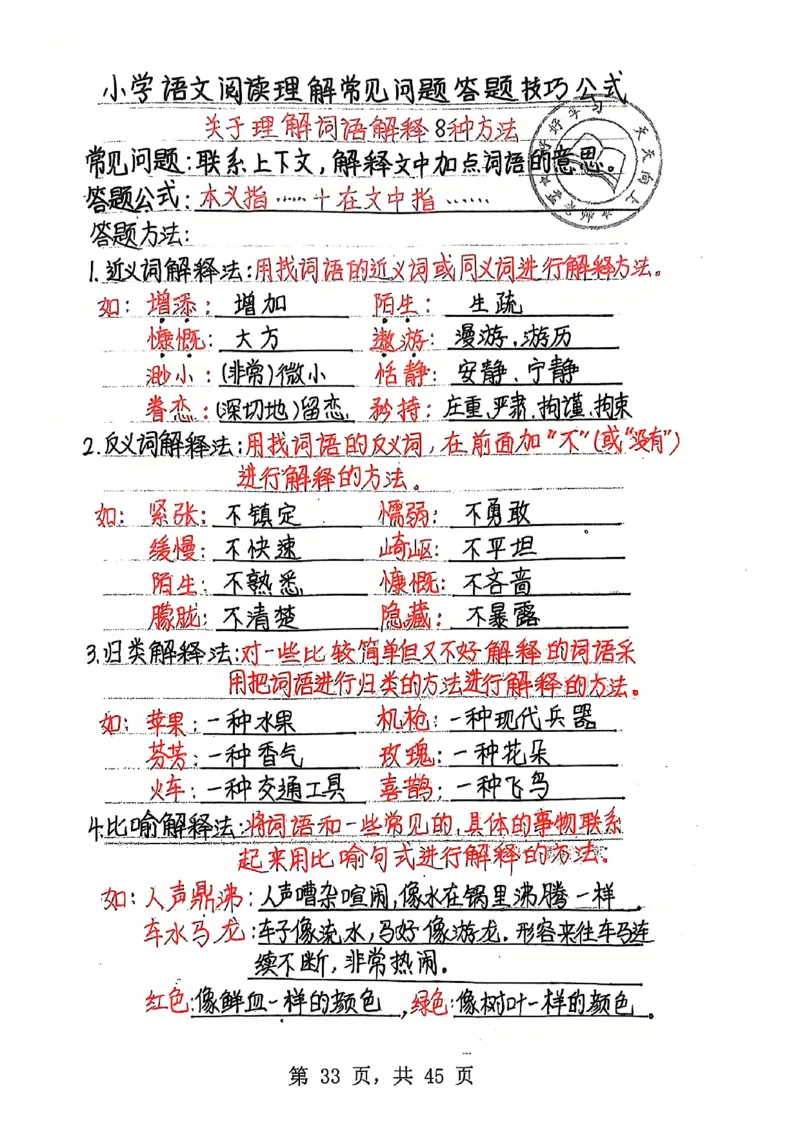 小学语文阅读理解常见问题答题技巧公式
关于理解词语解释8种方法
常见问题:联系上下文,解释文中加点词语的意思。
答题公式:本义指……+在文中指……
答题方法:
1.近义词解释法:用找词语的近义词或同义词进行解释方法。
如:增添:增加 陌生:生疏
慷慨:大方 遨游:漫游、游历
渺小:(非常)微小 恬静:安静、宁静
眷恋:(深切地)留恋 矜持:庄重、严肃、拘谨、拘束
2.反义词解释法:用找词语的反义词,在前面加“不”(或“没有”)
进行解释的方法。
如:紧张:不镇定 懦弱:不勇敢
缓慢:不快速 崎岖:不平坦
陌生:不熟悉 慷慨:不吝啬
朦胧:不清楚 隐藏:不暴露
3.归类解释法:对一些比较简单但又不好解释的词语采
用把词语进行归类的方法进行解释的方法。
如:苹果:一种水果 机枪:一种现代兵器
芬芳:一种香气 玫瑰:一种花朵
火车:一种交通工具 喜鹊:一种飞鸟
4.比喻解释法:将词语和一些常见的,具体的事物联系
起来用比喻句式进行解释的方法。
如:人声鼎沸:人声嘈杂喧闹,像水在锅里沸腾一样.
车水马龙:车子像流水,马好像游龙.形容来往车马连
续不断,非常热闹。
红色:像鲜血一样的颜色,绿色:像树叶一样的颜色。
好好学习
天天向上
第 33 页,共 45 页